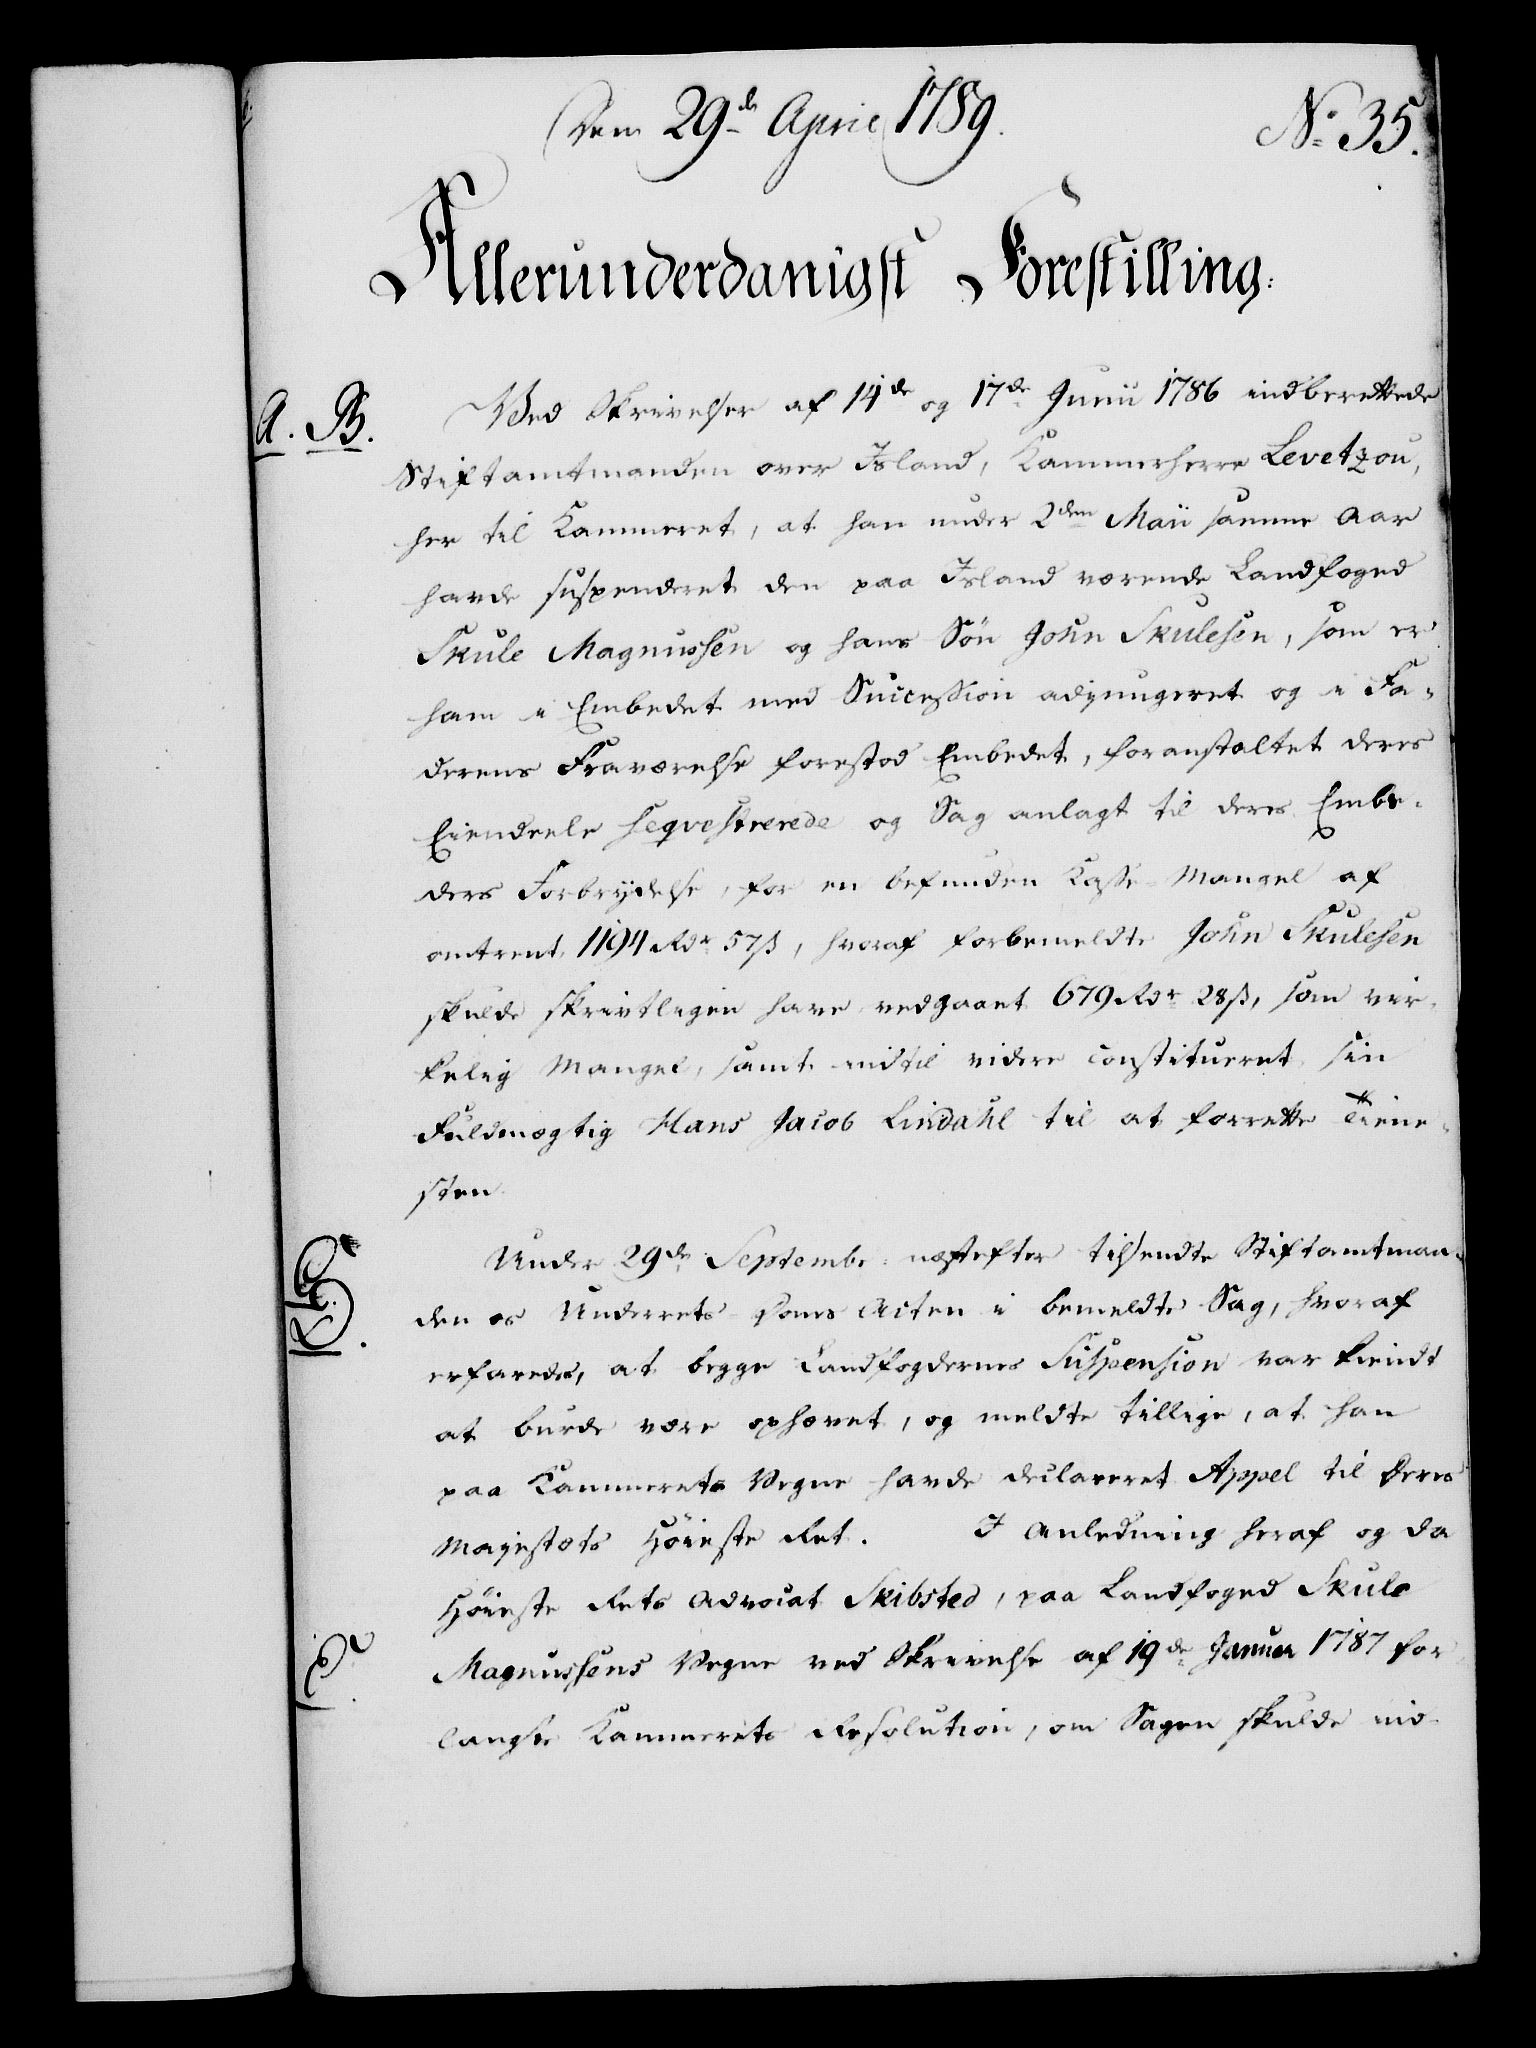 Den 29de April 1789.
No 35.
Allerunderdanigst Forestilling:
A. B.
Ved Skrivelser af 14de og 17de Junii 1786 indberettede
Stiftamtmanden over Island, Kammerherre Levetzou,
her til Kammeret, at han under 2den Maii samme Aar
havde suspenderet den paa Island værende Landfoged
Skule Magnussen og hans Søn John Skulesen, som er
ham i Embedet med Succession adjungeret og i Fa-
derens Fraværelse forestod Embedet, foranstaltet deres
Eiendeele seqvestrerede og Sag anlagt til deres Embe-
ders Forbrydelse, for en befunden Kasse-Mangel af
omtrent 1194 Rdr 57 ß, hvoraf forbemeldte John Skulesen
skulde skrivtligen have vedgaaet 679 Rdr 28 ß, som vir-
kelig Mangel, samt indtil videre constitueret sin
Fuldmægtig Hans Jacob Lindahl til at forrette Tiene-
sten.
Under 29de Septembr. næstefter tilsendte Stiftamtman-
den os Underrets-Doms Acten i bemeldte Sag, hvoraf
erfaredes, at begge Landfogdernes Suspension var kiendt
at burde være ophævet, og meldte tillige, at han
paa Kammerets Vegne havde declareret Appel til Deres
Majestæts Høieste Ret. I Anledning heraf og da
Høieste Rets Advocat Skibsted, paa Landfoged Skule
D.
Magnussens Vegne ved Skrivelse af 19de Januar 1787 for-
langte Kammerets Resolution, om Sagen skulde ind-